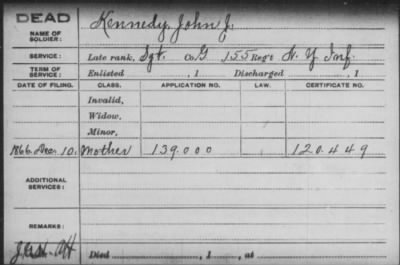 DEAD
NAME OF SOLDIER: Kennedy, John J.
SERVICE: Late rank, Sgt. Co. G 155 Reg't N. Y Inf.
TERM OF SERVICE: Enlisted , 1 Discharged , 1
DATE OF FILING. CLASS. APPLICATION NO. LAW. CERTIFICATE NO.
Invalid,
Widow,
Minor,
1866. Dec. 10. Mother 139.000 120.449
ADDITIONAL SERVICES:
REMARKS:
Died , 1 , at